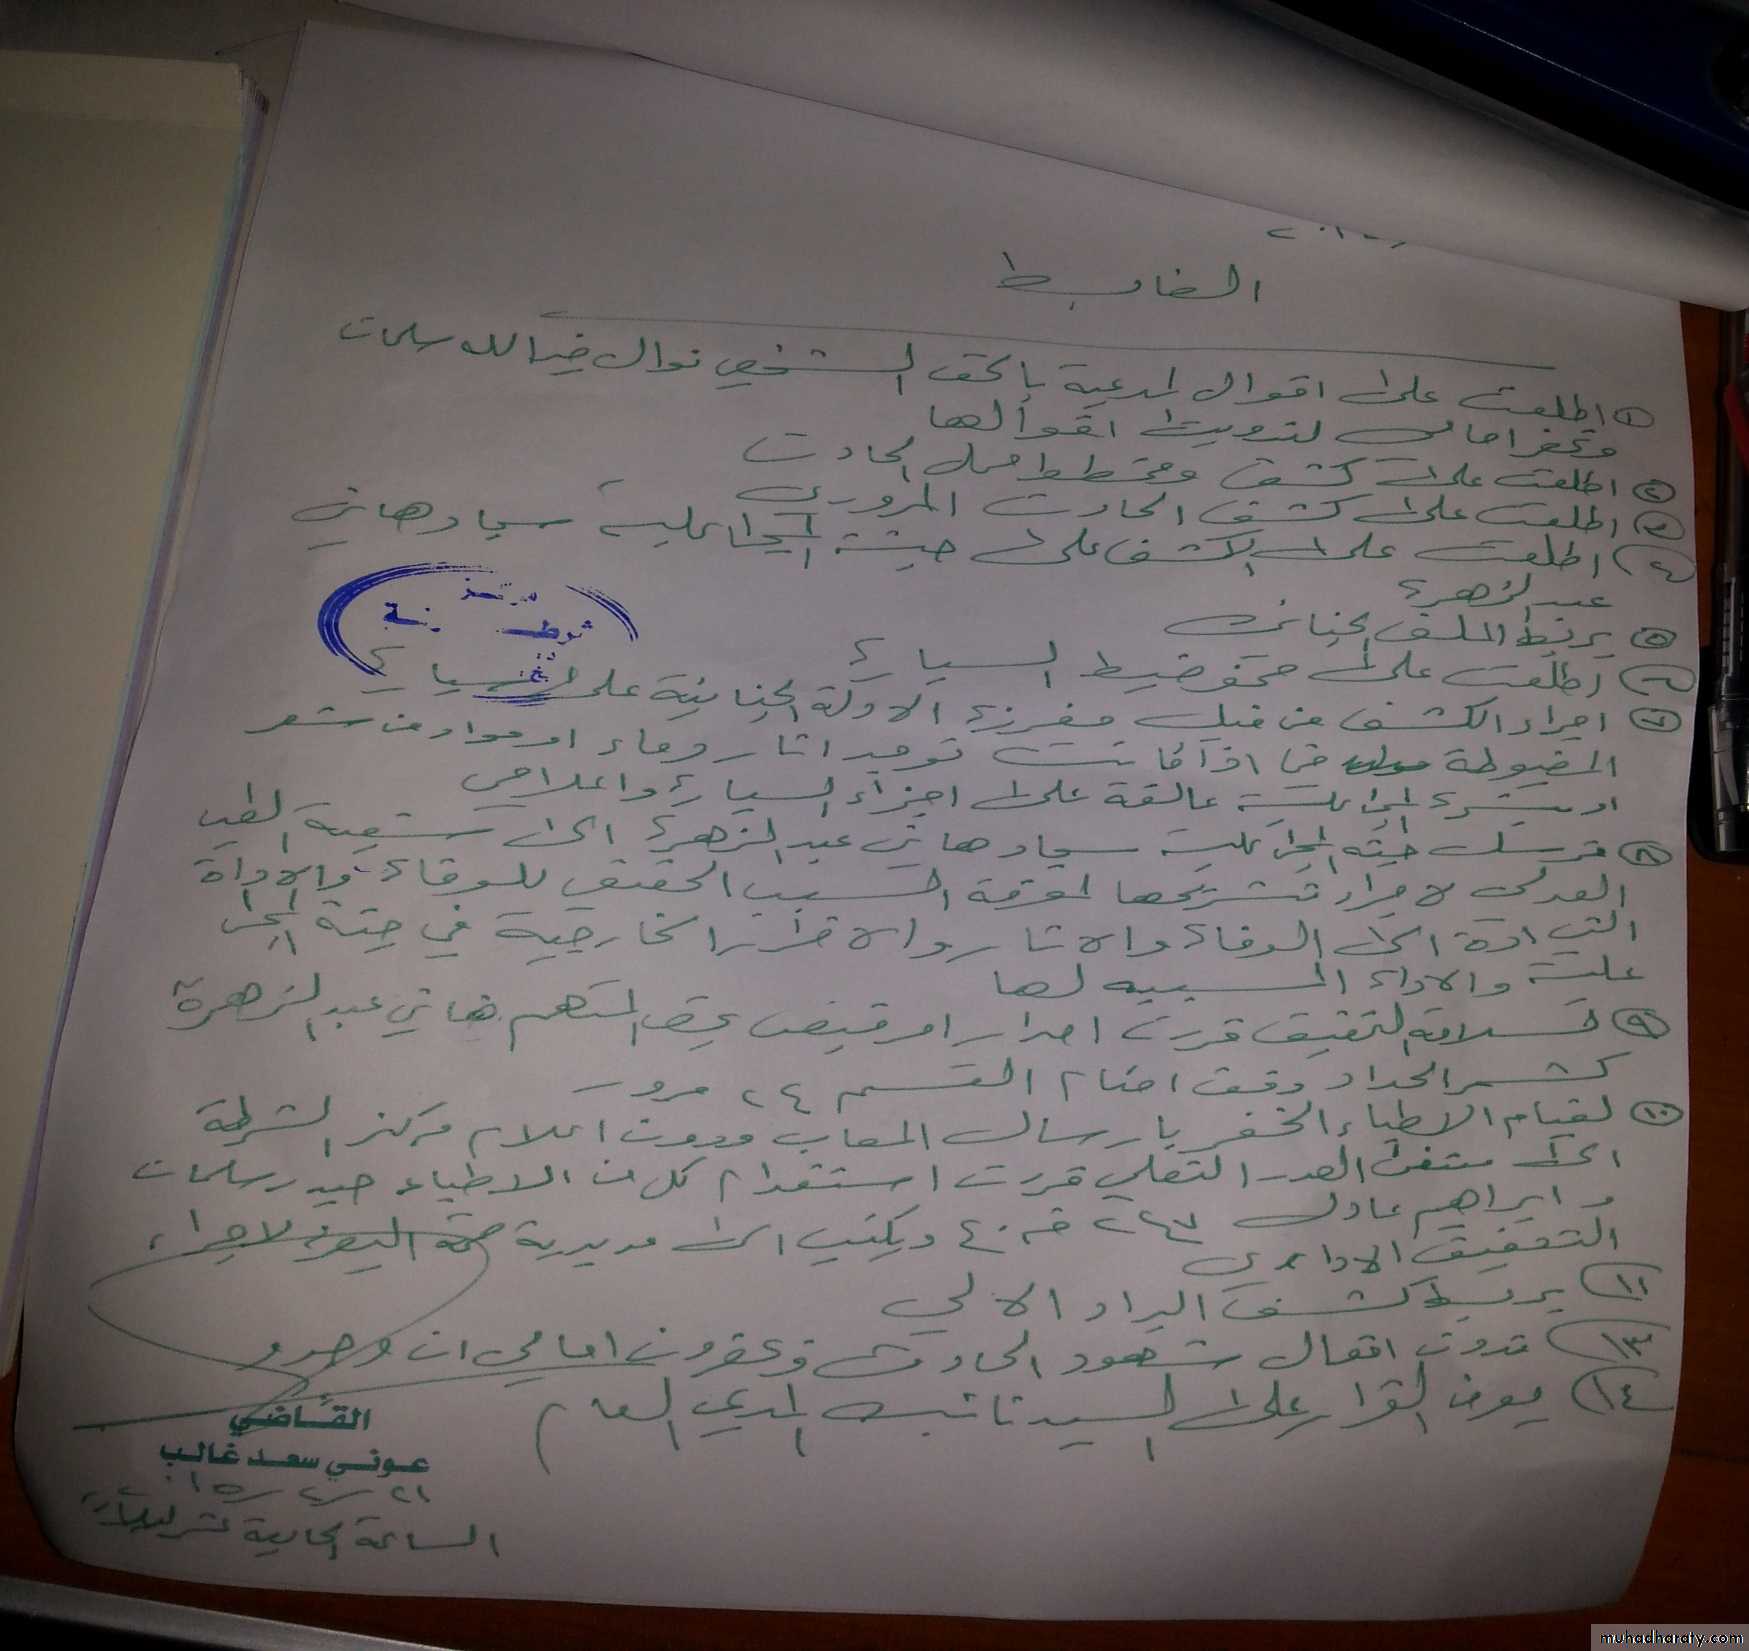 الضابط
① اطلعت على اقوال المدعية بالحق الشخصي نوال ضيالله سلمان
وتحضر امامي لتدوين اقوالها
② اطلعت على كشف ومخطط محل الحادث
③ اطلعت على كشف الحادث المروري
④ اطلعت على الكشف على جثة المجنى عليه سجاد هاني
عبد الزهرة
⑤ يربط الملف الجنائي
⑥ اطلعت على محضر ضبط السيارة
⑦ اجراء الكشف من قبل مفرزة الادلة الجنائية على السيارة
المضبوطة في اذا كانت توجد اثار دماء او مواد من شعر
او بشرة المجنى عليه عالقة على اجزاء السيارة واعلامي
⑧ ترسل جثة المجنى عليه سجاد هاني عبد الزهرة الى شعبة الطب
العدلي لاجراء تشريحها لمعرفة السبب الحقيقي للوفاة والاداة
التي ادة الى الوفاة والاثار والاضرار الخارجية في جثة المجنى
عليه والاداة المسببه لها
⑨ لسلامة التحقيق قررت اصدار امر قبض بحق المتهم هاني عبد الزهرة
الحداد وفق احكام القسم ٢٤ مرور
⑩ لقيام الاطباء الخفر بارسال المصاب بدون اعلام مركز الشرطة
الى مستشفى الصدر التعليمي قررت استقدام كل من الاطباء حيدر سلمان
و ابراهيم عادل ويكتب الى مديرية صحة البصرة لاجراء
التحقيق الاداري
⑪ يربط كشف البراد الالي
⑬ تدون اقوال شهود الحادث ويحضرون امامي ان وجدو
⑭ يعرض القرار على السيد نائب المدعي العام
مركز
شرطة
القاضي
عوني سعد غالب
٢١/٤/٢٠١٥
الساعة الحادية عشر ليلاً
muhadharaty.com